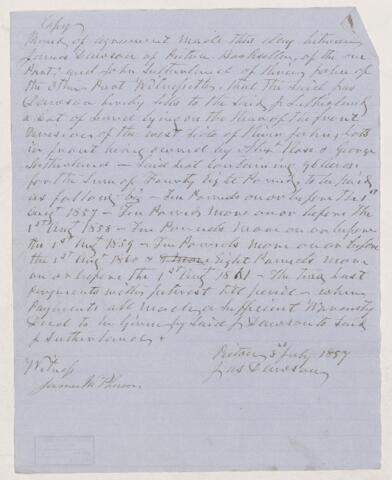 Copy
of agreement made this day between
James Dawson of Pictou Bookseller, of the one
Part, and John Sutherland of River John of
the Other Part Witnesseth, that the Said Jas
Dawson hereby Sells to the Said J. Sutherland
a Lot of Land lying on the Rear of the front
Division of the West Side of River John, Lots
in front being owned by Alexr Rose & George
Sutherland — Said Lot containing 96 Acres
for the Sum of Fourty Eight Pounds to be paid
as follows viz — Ten Pounds on or before the 1st
Augt 1857 — Ten Pounds more on or before the
1st Augt 1858 — Ten Pounds more on or before
the 1st Augt 1859 — Ten Pounds more on or before
the 1st Augt 1860 & Eight Pounds more
on or before the 1st Augt 1861 — The Two Last
payments with interest till paid — when
Payments all made a Sufficient Warranty
Deed to be Given by Said J Dawson to Said
J Sutherland
Pictou 3d July 1857
Witness Jas Dawson
James McPherson